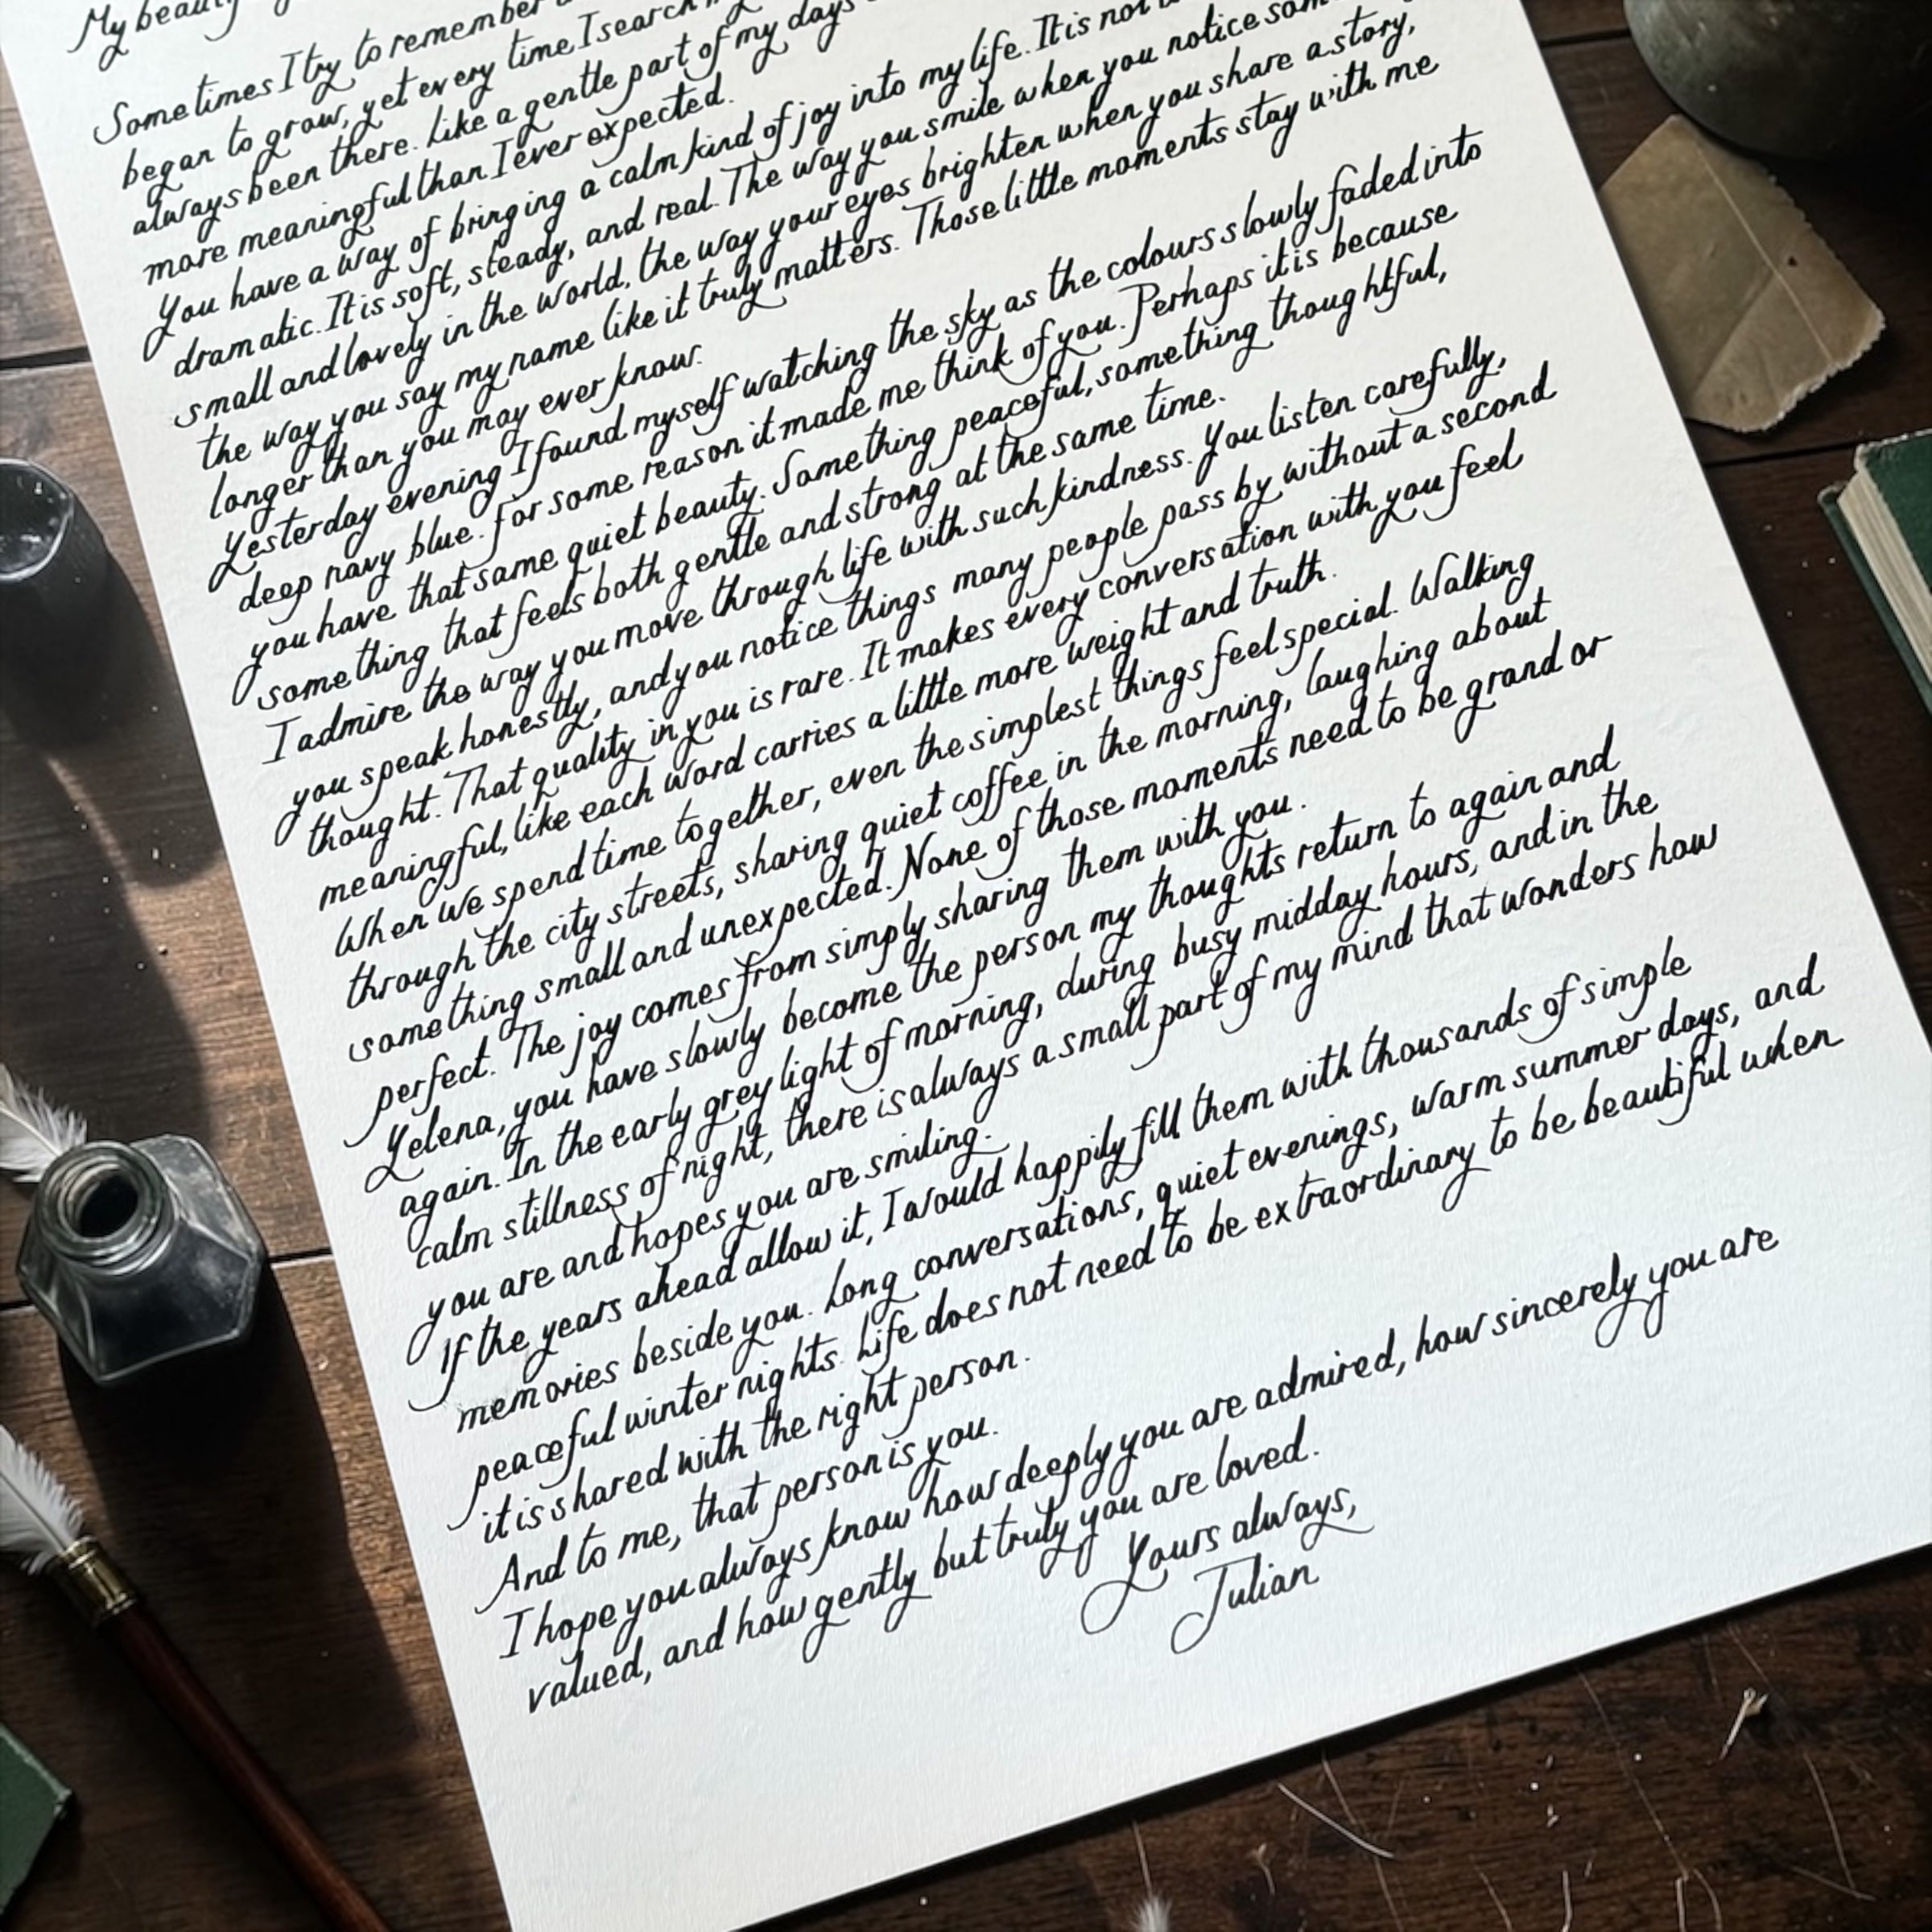 My
Sometimes I try to remember
began to grow, yet every time I search
always been there. Like a gentle part of my days
more meaningful than I ever expected.
You have a way of bringing a calm kind of joy into my life. It is not
dramatic. It is soft, steady, and real. The way you smile when you notice
small and lovely in the world, the way your eyes brighten when you share a story,
the way you say my name like it truly matters. Those little moments stay with me
longer than you may ever know.
Yesterday evening I found myself watching the sky as the colours slowly faded into
deep navy blue. For some reason it made me think of you. Perhaps it is because
you have that same quiet beauty. Something peaceful, something thoughtful,
something that feels both gentle and strong at the same time.
I admire the way you move through life with such kindness. You listen carefully,
you speak honestly, and you notice things many people pass by without a second
thought. That quality in you is rare. It makes every conversation with you feel
meaningful, like each word carries a little more weight and truth.
When we spend time together, even the simplest things feel special. Walking
through the city streets, sharing quiet coffee in the morning, laughing about
something small and unexpected. None of those moments need to be grand or
perfect. The joy comes from simply sharing them with you.
Yelena, you have slowly become the person my thoughts return to again and
again. In the early grey light of morning, during busy midday hours, and in the
calm stillness of night, there is always a small part of my mind that wonders how
you are and hopes you are smiling.
If the years ahead allow it, I would happily fill them with thousands of simple
memories beside you. Long conversations, quiet evenings, warm summer days, and
peaceful winter nights. Life does not need to be extraordinary to be beautiful when
it is shared with the right person.
And to me, that person is you.
I hope you always know how deeply you are admired, how sincerely you are
valued, and how gently but truly you are loved.
Yours always,
Julian